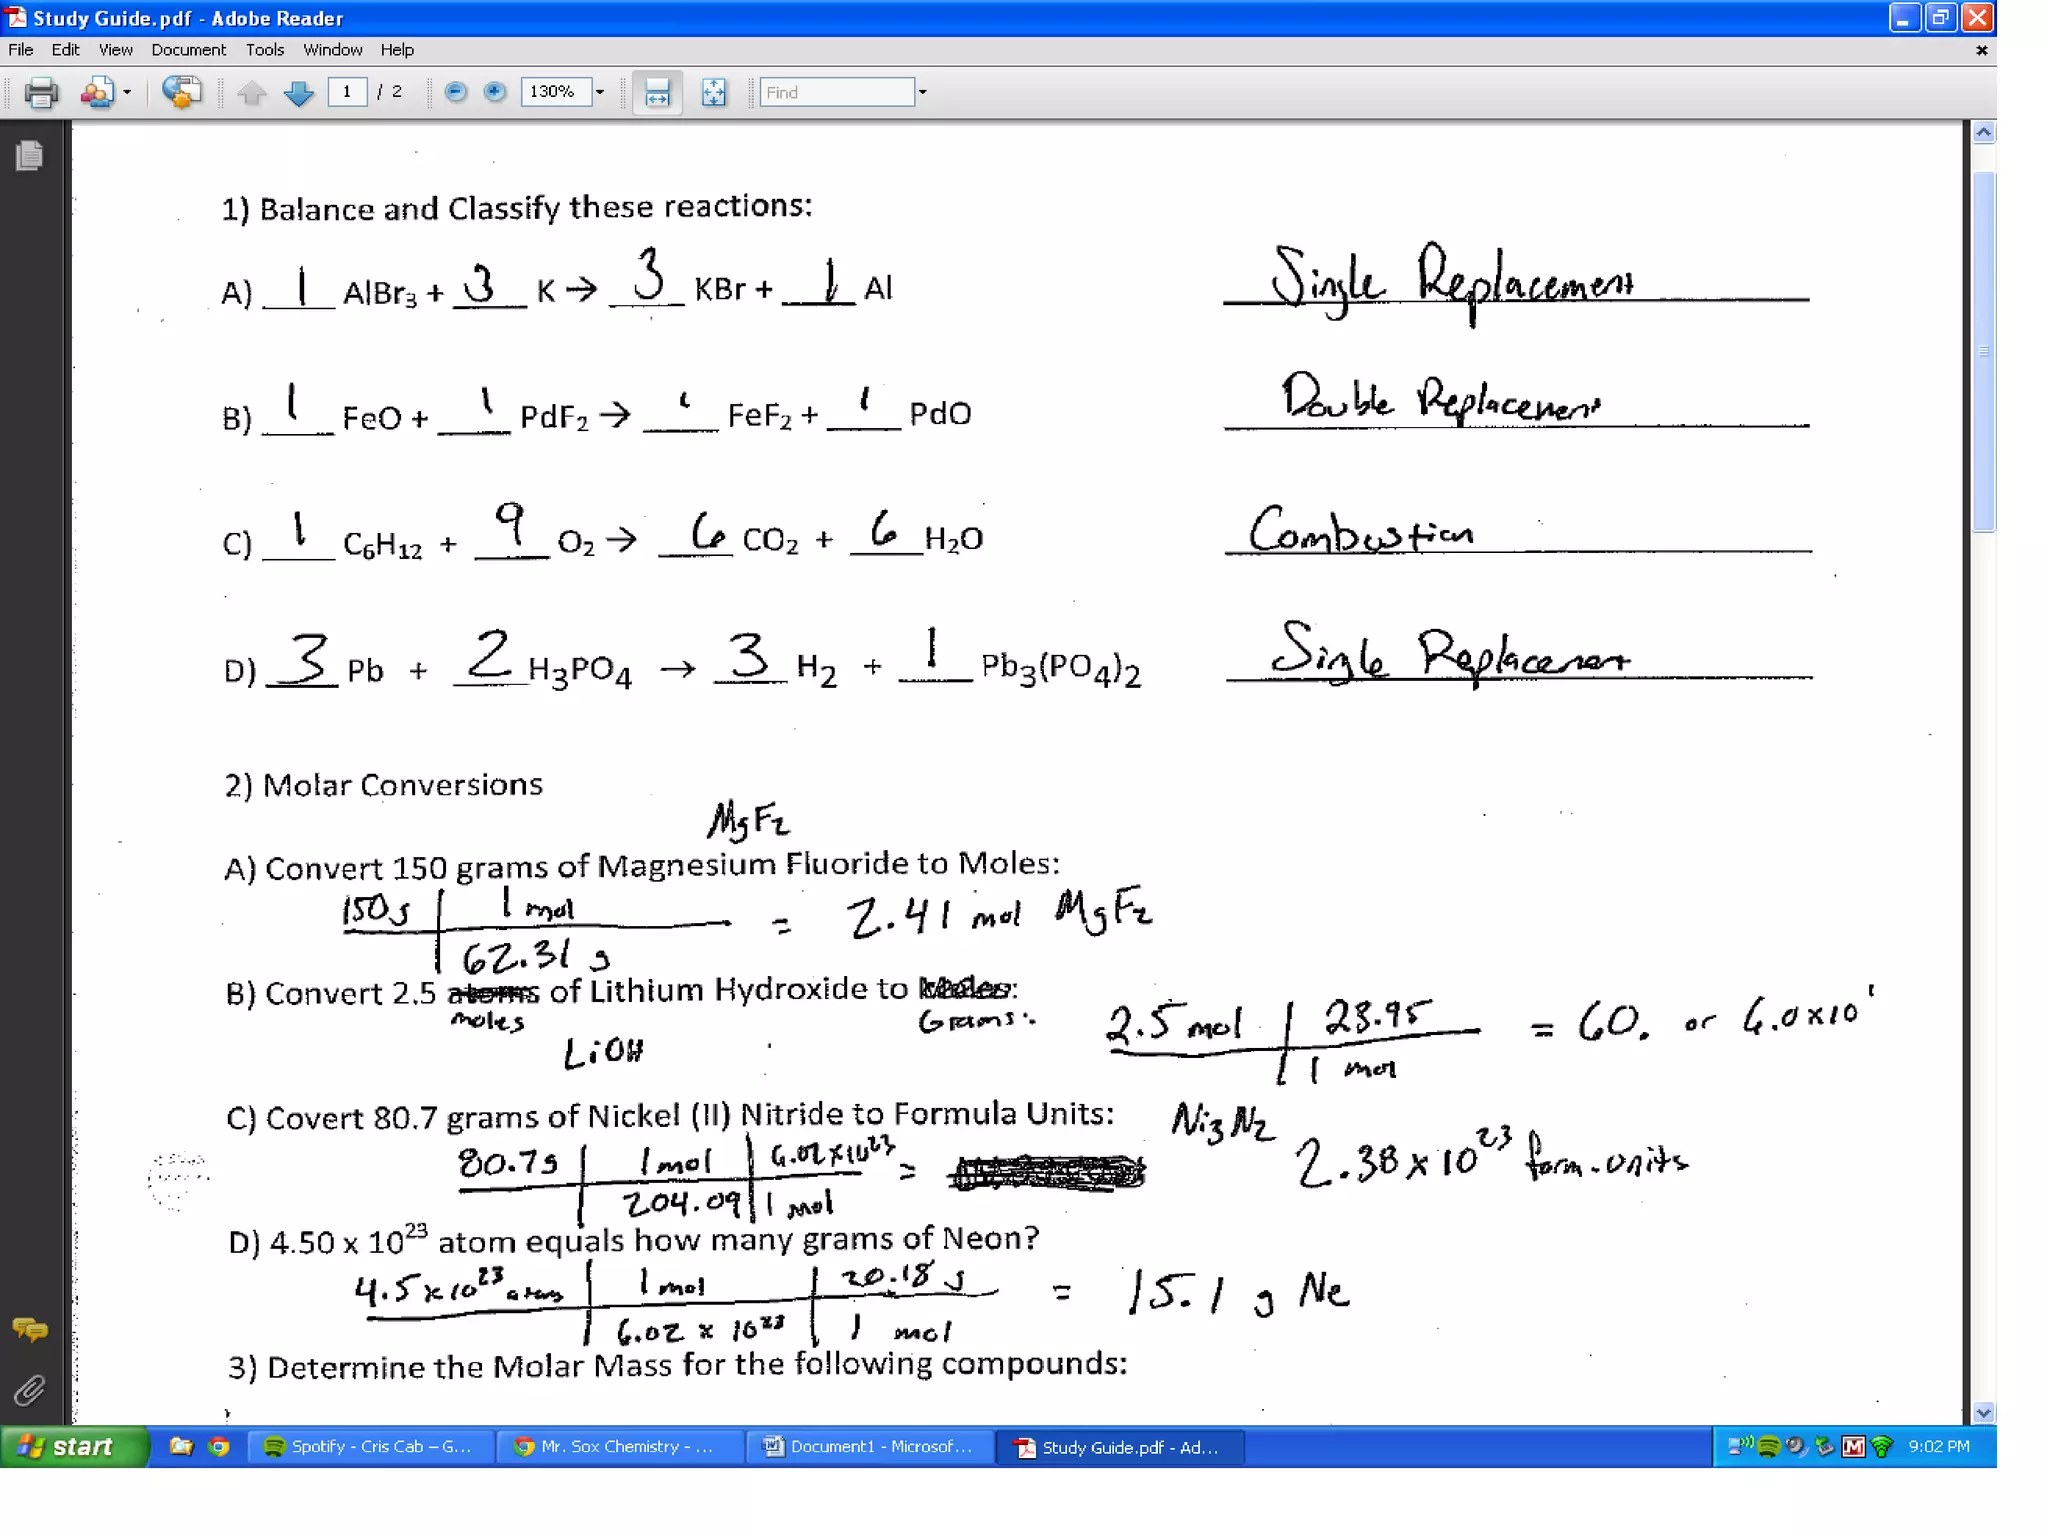 Study Guide.pdf - Adobe Reader
File Edit View Document Tools Window Help
1 / 2 130% Find
1) Balance and Classify these reactions:
A) 1 AlBr₃ + 3 K → 3 KBr + 1 Al Single Replacement
B) 1 FeO + 1 PdF₂ → 1 FeF₂ + 1 PdO Double Replacement
C) 1 C₆H₁₂ + 9 O₂ → 6 CO₂ + 6 H₂O Combustion
D) 3 Pb + 2 H₃PO₄ → 3 H₂ + 1 Pb₃(PO₄)₂ Single Replacement
2) Molar Conversions
MgF₂
A) Convert 150 grams of Magnesium Fluoride to Moles:
150g | 1 mol = 2.41 mol MgF₂
62.31 g
B) Convert 2.5 atoms of Lithium Hydroxide to Moles:
moles Grams: 2.5 mol | 23.95 = 60. or 6.0x10¹
LiOH 1 mol
C) Covert 80.7 grams of Nickel (II) Nitride to Formula Units: Ni₃N₂
80.7g | 1 mol | 6.02x10²³ = 2.38x10²³ form. units
204.09 | 1 mol
D) 4.50 x 10²³ atom equals how many grams of Neon?
4.5x10²³ atoms | 1 mol | 20.18 g = 15.1 g Ne
6.02 x 10²³ | 1 mol
3) Determine the Molar Mass for the following compounds:
start Spotify - Cris Cab – G... Mr. Sox Chemistry - ... Document1 - Microsof... Study Guide.pdf - Ad... 9:02 PM